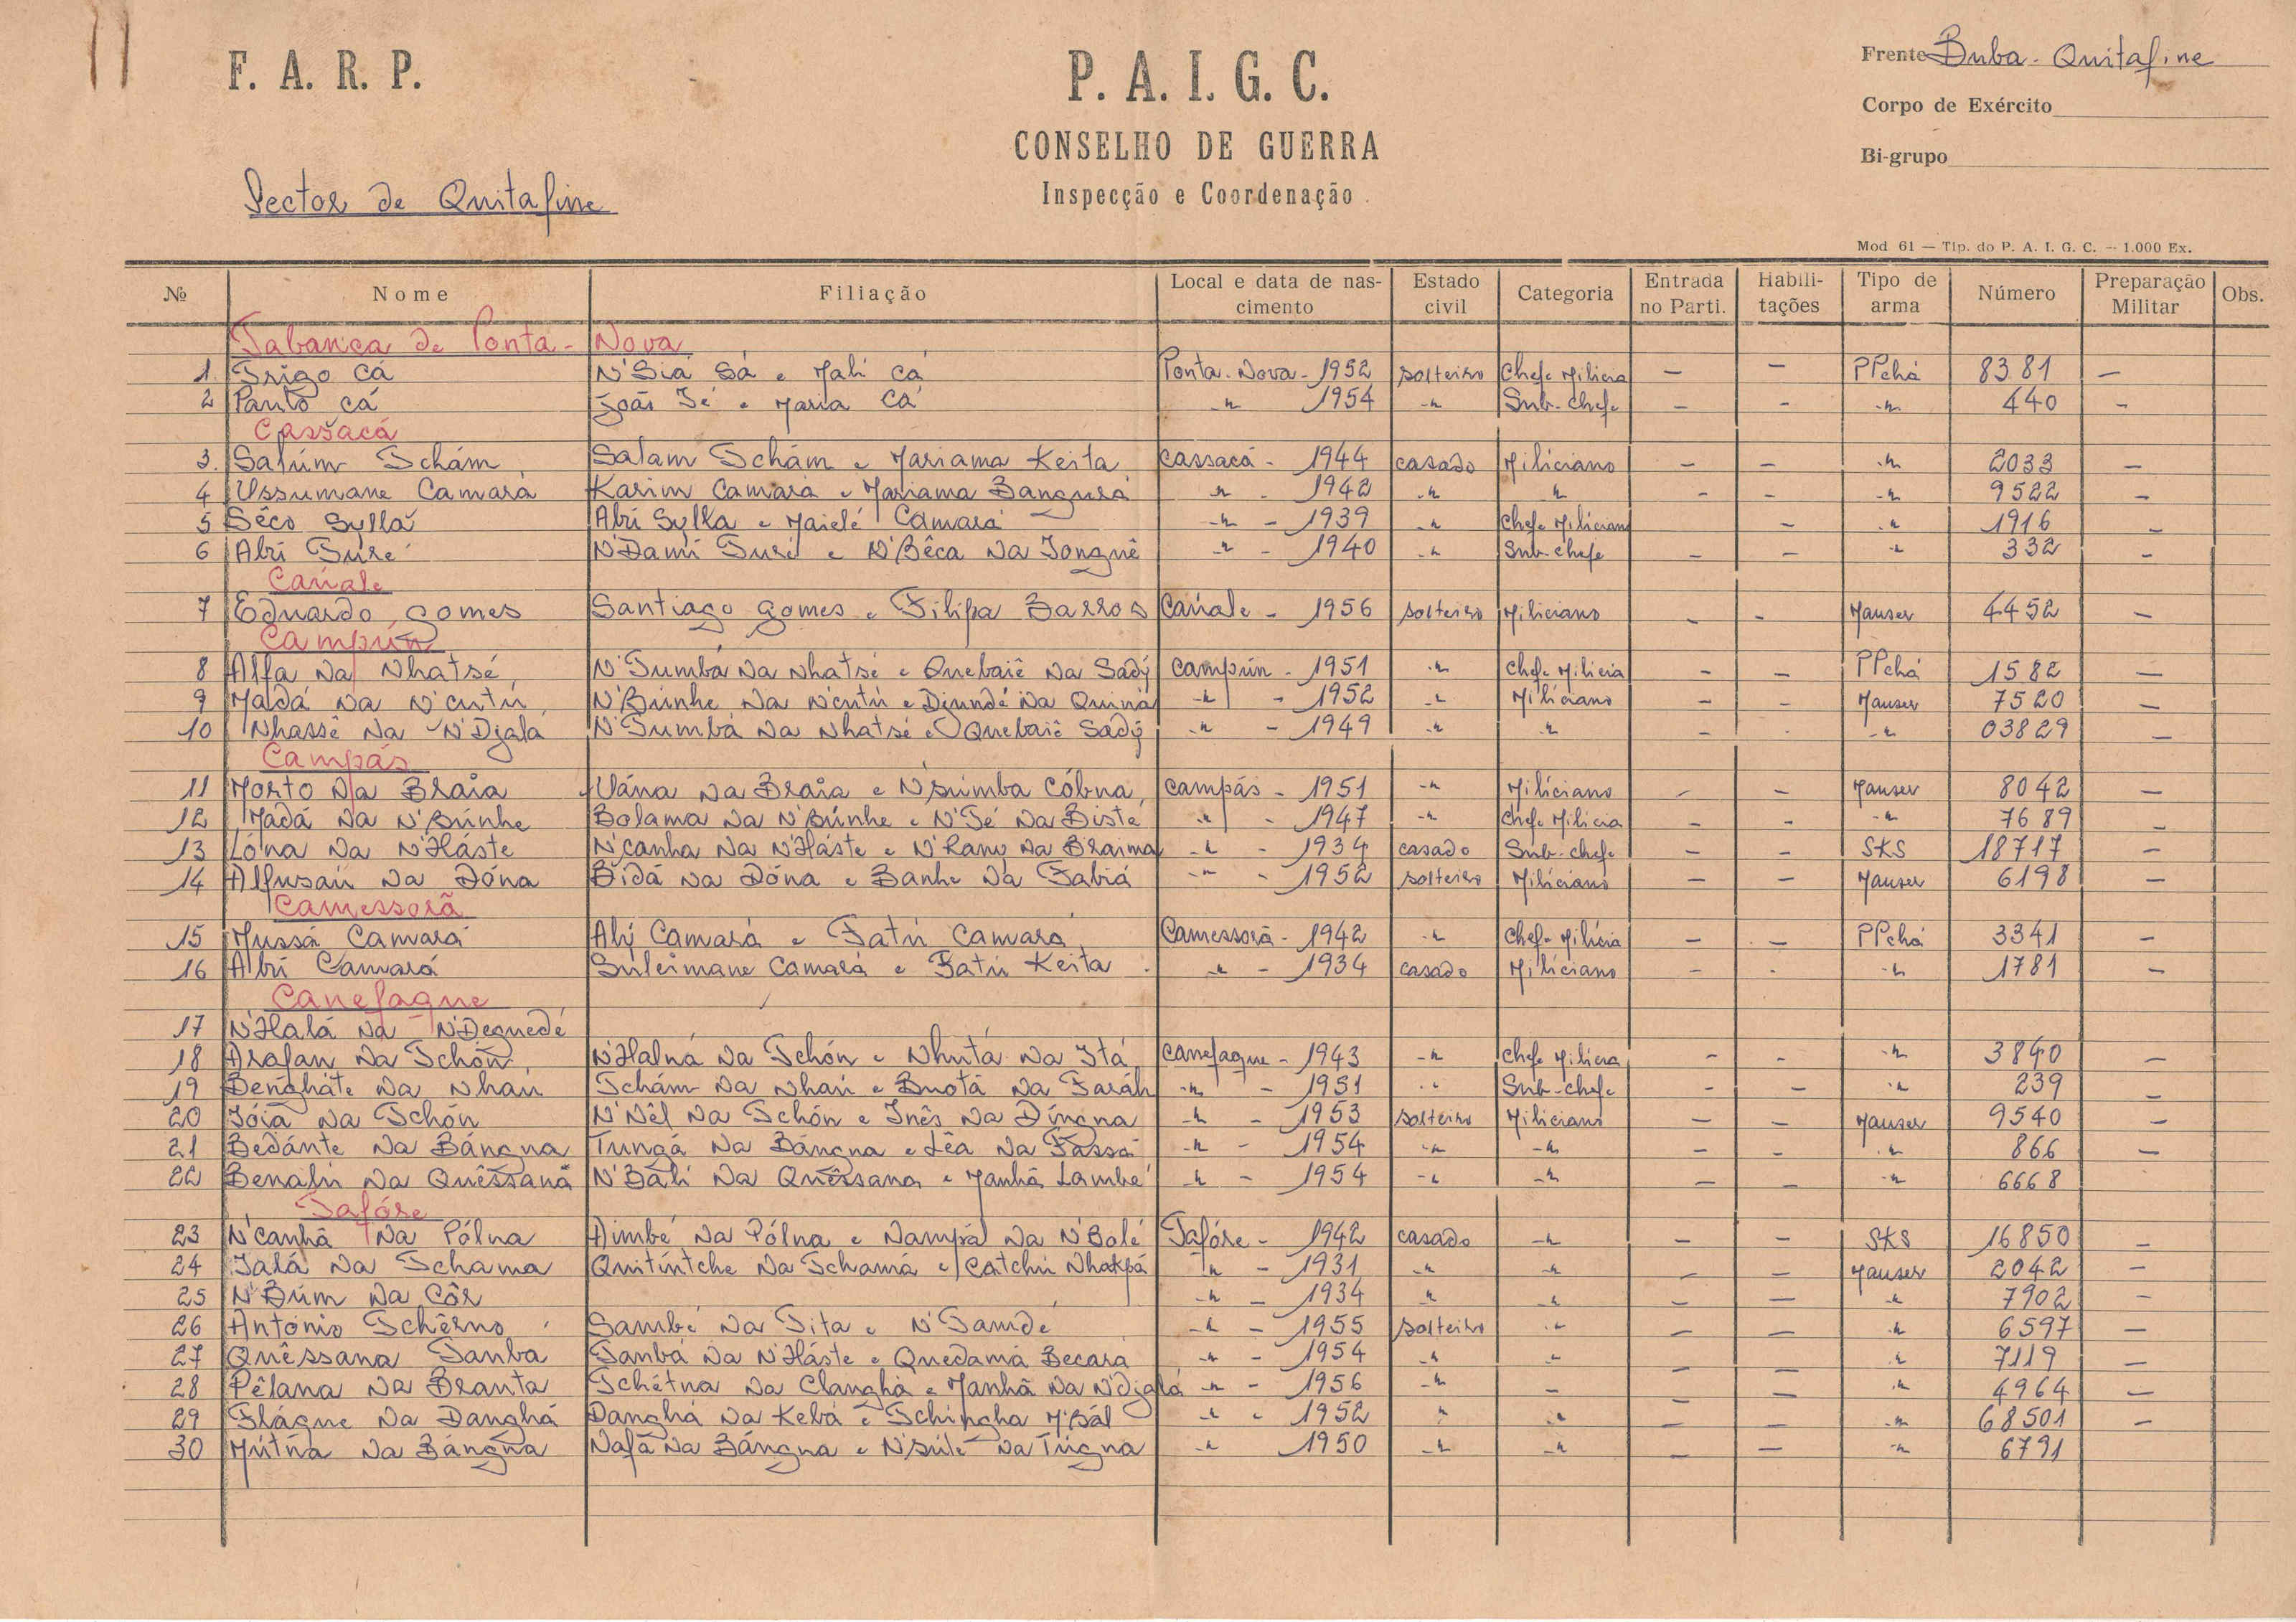 F. A. R. P.
P. A. I. G. C.
CONSELHO DE GUERRA
Inspecção e Coordenação
Frente Buba - Quitafine
Corpo de Exército
Bi-grupo
Sector de Quitafine
Mod 61 — Tip. do P. A. I. G. C. — 1.000 Ex.
Nº Nome Filiação Local e data de nascimento Estado civil Categoria Entrada no Parti. Habilitações Tipo de arma Número Preparação Militar Obs.
Tabanca de Ponta-Nova
1. Trigo Cá N'Siá Sá e Mali Cá Ponta-Nova - 1952 solteiro Chefe Milicia — — PPchá 8381 —
2 Paulo Cá João Té e Maria Cá -"- 1954 -"- Sub-chefe — — -"- 440 —
Cassacá
3. Salúm Tchám Salam Tchám e Mariama Keita Cassacá - 1944 casado Miliciano — — -"- 2033 —
4 Ussumane Camará Karim Camará e Mariama Bangurá -"- - 1942 -"- -"- — — -"- 9522 —
5 Sêco Sylla Abú Sylla e Maielé Camará -"- - 1939 -"- Chefe Milician — -"- 1916 —
6 Abú Turé N'Damí Turé e N'Bêca Na Tonguê -"- - 1940 -"- Sub-chefe — — -"- 332 —
Canale
7 Eduardo Gomes Santiago Gomes e Filipa Barros Canale - 1956 solteiro Miliciano — - Mauser 4452 —
Campún
8 Alfa Na Nhatsé N'Tumbá Na Nhatsé e Quebaiê Na Sadý Campún - 1951 -"- Chefe Milicia — — PPchá 1582 —
9 Madá Na N'cutú N'Búnhe Na N'cutú e Djundé Na Quiná -"- - 1952 -"- Miliciano — — Mauser 7520 —
10 Nhassê Na N'Djalá N'Tumbá Na Nhatsé e Quebaiê Sadý -"- - 1949 -"- -"- — - -"- 03829 —
Campás
11 Morto Na Braia Uána Na Braia e N'sumba Cóbna Campás - 1951 -"- Miliciano — — Mauser 8042 —
12 Madá Na N'Búnhe Bolama Na N'Búnhe e N'Té Na Biste -"- - 1947 -"- Chefe Milicia — — -"- 7689 —
13 Lóna Na N'Háste N'canha Na N'Háste e N'Ranu Na Braima -"- - 1934 casado Sub-chefe — — SKS 18717 —
14 Alfusaú Na Dóna Bidá Na Dóna e Banhe Na Fabiá -"- - 1952 solteiro Miliciano — — Mauser 6198 —
Camessorã
15 Mussá Camará Alý Camará e Fatú Camará Camessorã - 1942 -"- Chefe Milícia — — PPchá 3341 —
16 Abú Camará Suleimane Camará e Fatú Keita -"- - 1934 casado Miliciano — - -"- 1781 —
Canefaque
17 N'Halá Na N'Deguedé
18 Arafan Na Tchón N'Halná Na Tchón e Nhutá Na Itá Canefaque - 1943 -"- Chefe Milicia — - -"- 3840 —
19 Bengháte Na Nhaú Tchám Na Nhaú e Buotã Na Faráh -"- - 1951 -"- Sub-chefe — — -"- 239 —
20 Jóiã Na Tchón N'Nêl Na Tchón e Inês Na Díngna -"- - 1953 solteiro Miliciano — — Mauser 9540 —
21 Bedánte Na Bángna Tungá Na Bángna e Lêa Na Fassá -"- - 1954 -"- -"- — — -"- 866 —
22 Benalú Na Quêssanã N'Bálí Na Quêssana e Manhã Lambé -"- - 1954 -"- -"- — — -"- 6668
Tafóre
23 N'canhã Na Pólna Aimbé Na Pólna e Nampál Na N'Balé Tafóre - 1942 casado -"- — — SKS 16850 —
24 Talá Na Tchama Quitíntche Na Tchamá e Catchú Nhakpá -"- - 1931 -"- -"- — — Mauser 2042 —
25 N'Búm Na Côr -"- - 1934 -"- -"- — — -"- 7902 —
26 António Tchêrno Sambé Na Tita e N'Tamdé -"- - 1955 solteiro -"- — — -"- 6597 —
27 Quêssana Tanba Tambá Na N'Háste e Quedamá Becará -"- - 1954 -"- -"- — — -"- 7119 —
28 Pêlana Na Branta Tchétna Na Clanghá e Manhã Na N'djalá -"- - 1956 -"- — — — -"- 4964 —
29 Flágue Na Danghá Danghá Na Kebá e Tchingha M'Bál -"- - 1952 -"- -"- — — -"- 68501 —
30 Mútna Na Bángna Nafã Na Bángna e N'súlé Na Túgna -"- 1950 -"- -"- — — -"- 6791